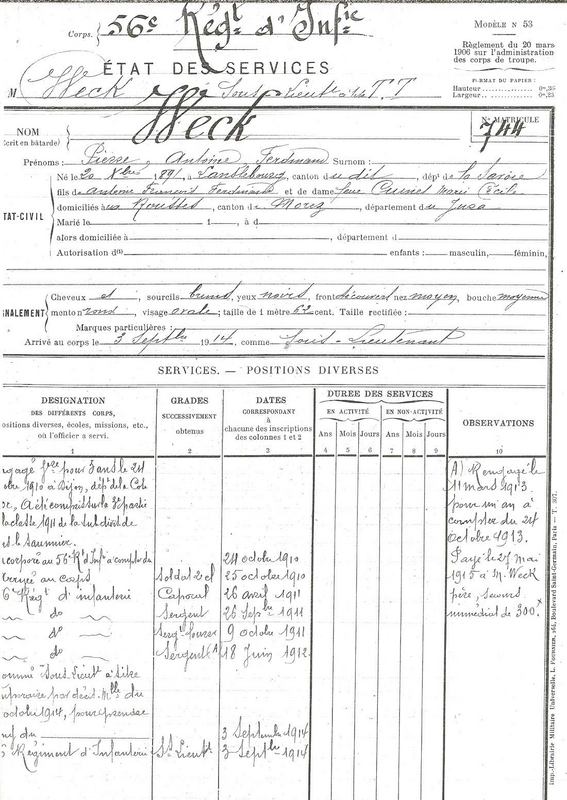 Corps. 56e Régt d'Infie
MODÈLE N 53
Règlement du 20 mars
1906 sur l'administration
des corps de troupe.
FORMAT DU PAPIER:
Hauteur 0m,36
Largeur 0m,23
ÉTAT DES SERVICES
M Weck Sous-Lieutt T.T
NOM Weck
(écrit en bâtarde)
N° MATRICULE
744
Prénoms: Pierre Antoine Ferdinand Surnom:
Né le 20 1891, à Lanslebourg, canton du dit, dépt de la Savoie
fils de Antoine François Ferdinand et de dame Marie Cécile
TAT-CIVIL
domiciliés aux Rousses, canton de Morez, département du Jura
Marié le 1 , à d
alors domiciliée à département d
Autorisation d(1) enfants: masculin, féminin,
NALEMENT
Cheveux et , sourcils bruns, yeux noirs, front découvert nez moyen, bouche moyenne
menton rond, visage ovale; taille de 1 mètre 62 cent. Taille rectifiée:
Marques particulières:
Arrivé au corps le 3 Septbre 1914, comme Sous-Lieutenant
SERVICES. — POSITIONS DIVERSES
DESIGNATION
DES DIFFÉRENTS CORPS,
ositions diverses, écoles, missions, etc.,
où l'officier a servi.
GRADES
SUCCESSIVEMENT
obtenus
DATES
CORRESPONDANT
à
chacune des inscriptions
des colonnes 1 et 2
DUREE DES SERVICES
EN ACTIVITÉ
EN NON-ACTIVITÉ
Ans Mois Jours Ans Mois Jours
OBSERVATIONS
1 2 3 4 5 6 7 8 9 10
pour 3 ans le 24
obre 1910 à Dijon, dépt de la Côte
A été compris sur la 3e partie
la classe 1911 de la subdiv de
le Saunier.
corporé au 56e Rt d'Infie à compter du 24 octobre 1910
au corps Soldat 2e cl 25 octobre 1910
6e Régt d'infanterie Caporal 26 avril 1911
do Sergent 26 Sepbre 1911
do Sergt-fourrier 9 octobre 1911
do Sergent 18 Juin 1912
ommé Sous-Lieutt à titre
poraire par décis. Mlle du
octobre 1914, pour prendre
rang du 3 Septembre 1914
Régiment d'Infanterie St Lieutt 3 Septbre 1914
A) Rengagé le
11 mars 1913
pour un an à
compter du 24
octobre 1913.
Payé le 27 mai
1915 à M. Weck
père, secours
immédiat de 300.
Imp.-Librairie Militaire Universelle, L. FOURNIER, 264, Boulevard Saint-Germain, Paris — T. 307.